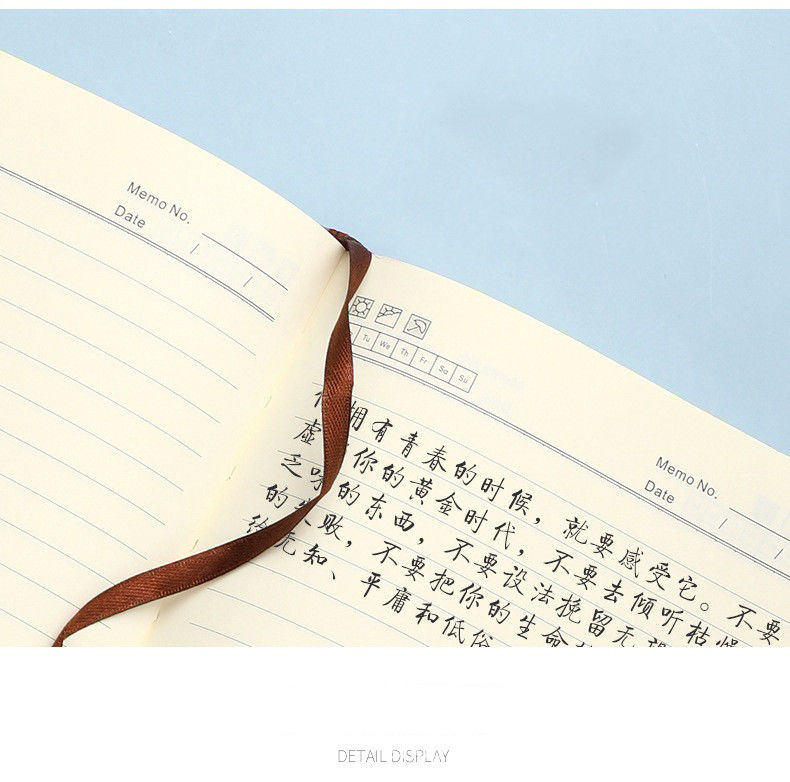 Memo No.
Date / /
Tu We Th Fr Sa Su
Memo No.
Date / /
拥有青春的时候，就要感受它。不要
虚 你的黄金时代，不要去倾听枯燥
乏味的东西，不要设法挽留无
的失败，不要把你的生命
给无知、平庸和低俗
DETAIL DISPLAY